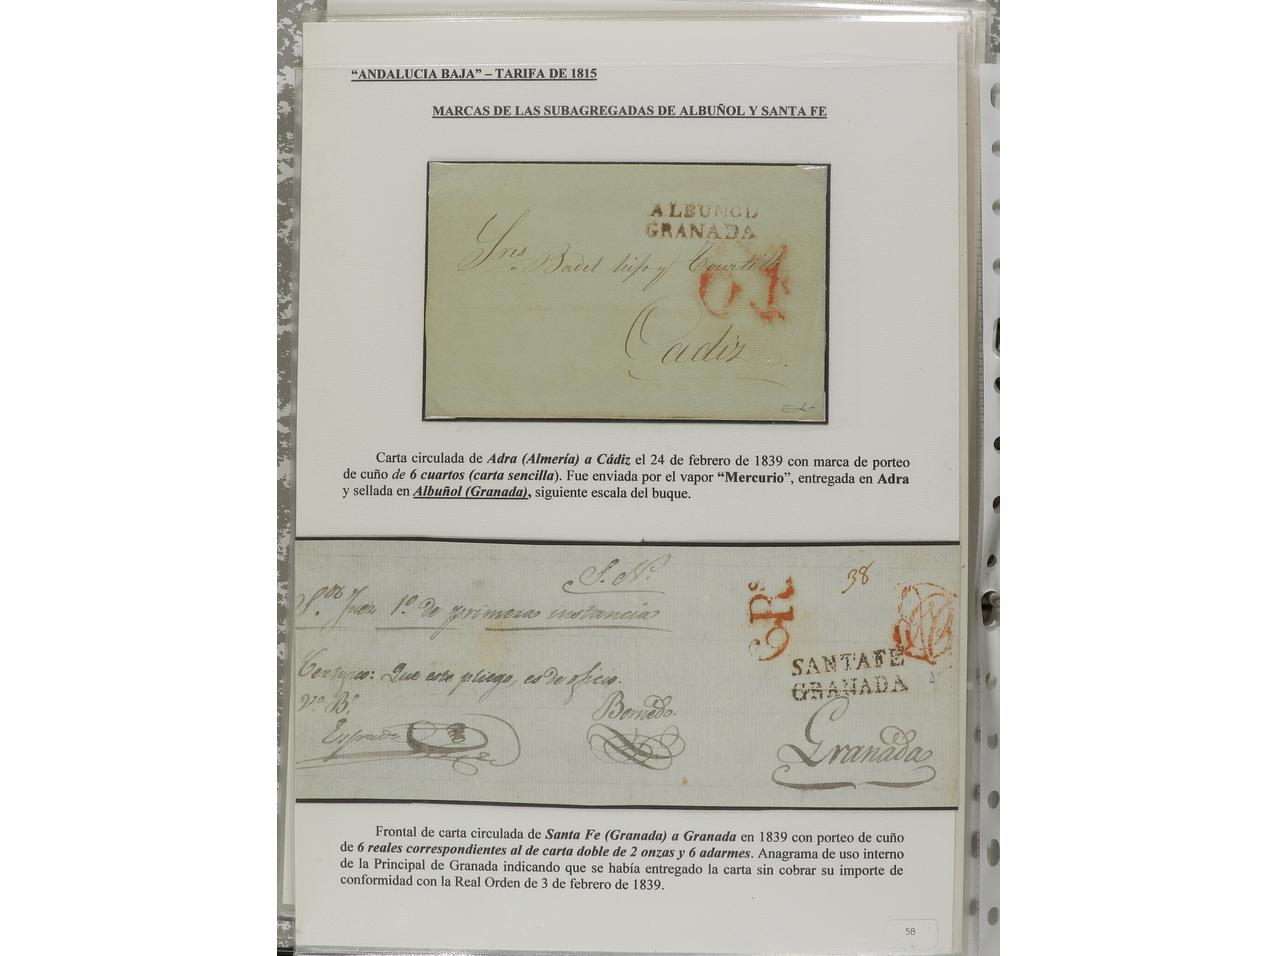 “ANDALUCIA BAJA” – TARIFA DE 1815
MARCAS DE LAS SUBAGREGADAS DE ALBUÑOL Y SANTA FE
ALBUÑOL
GRANADA
Sres. Badel hijo y
61
Cadiz
Carta circulada de Adra (Almería) a Cádiz el 24 de febrero de 1839 con marca de porteo
de cuño de 6 cuartos (carta sencilla). Fue enviada por el vapor “Mercurio”, entregada en Adra
y sellada en Albuñol (Granada), siguiente escala del buque.
S. N.
Juez 1º de primera instancia
6 Rs.
38
SANTAFE
GRANADA
Certifico: Que este pliego, es de oficio.
Vº Bº
Granada
Frontal de carta circulada de Santa Fe (Granada) a Granada en 1839 con porteo de cuño
de 6 reales correspondientes al de carta doble de 2 onzas y 6 adarmes. Anagrama de uso interno
de la Principal de Granada indicando que se había entregado la carta sin cobrar su importe de
conformidad con la Real Orden de 3 de febrero de 1839.
58